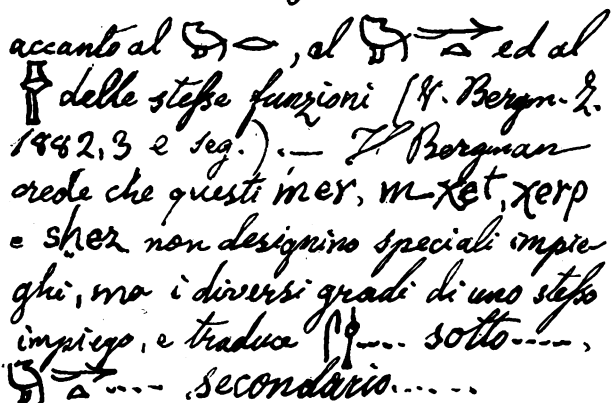 accanto al 𓅓𓂋, al 𓅓𓐍𓏏 ed al
delle stesse funzioni (V. Bergm. Z.
1882, 3 e seg.). — V. Bergman
crede che questi mer, m-xet, xerp
e shez non designino speciali impie-
ghi, ma i diversi gradi di uno stesso
impiego, e traduce .... sotto.....,
.... secondario......